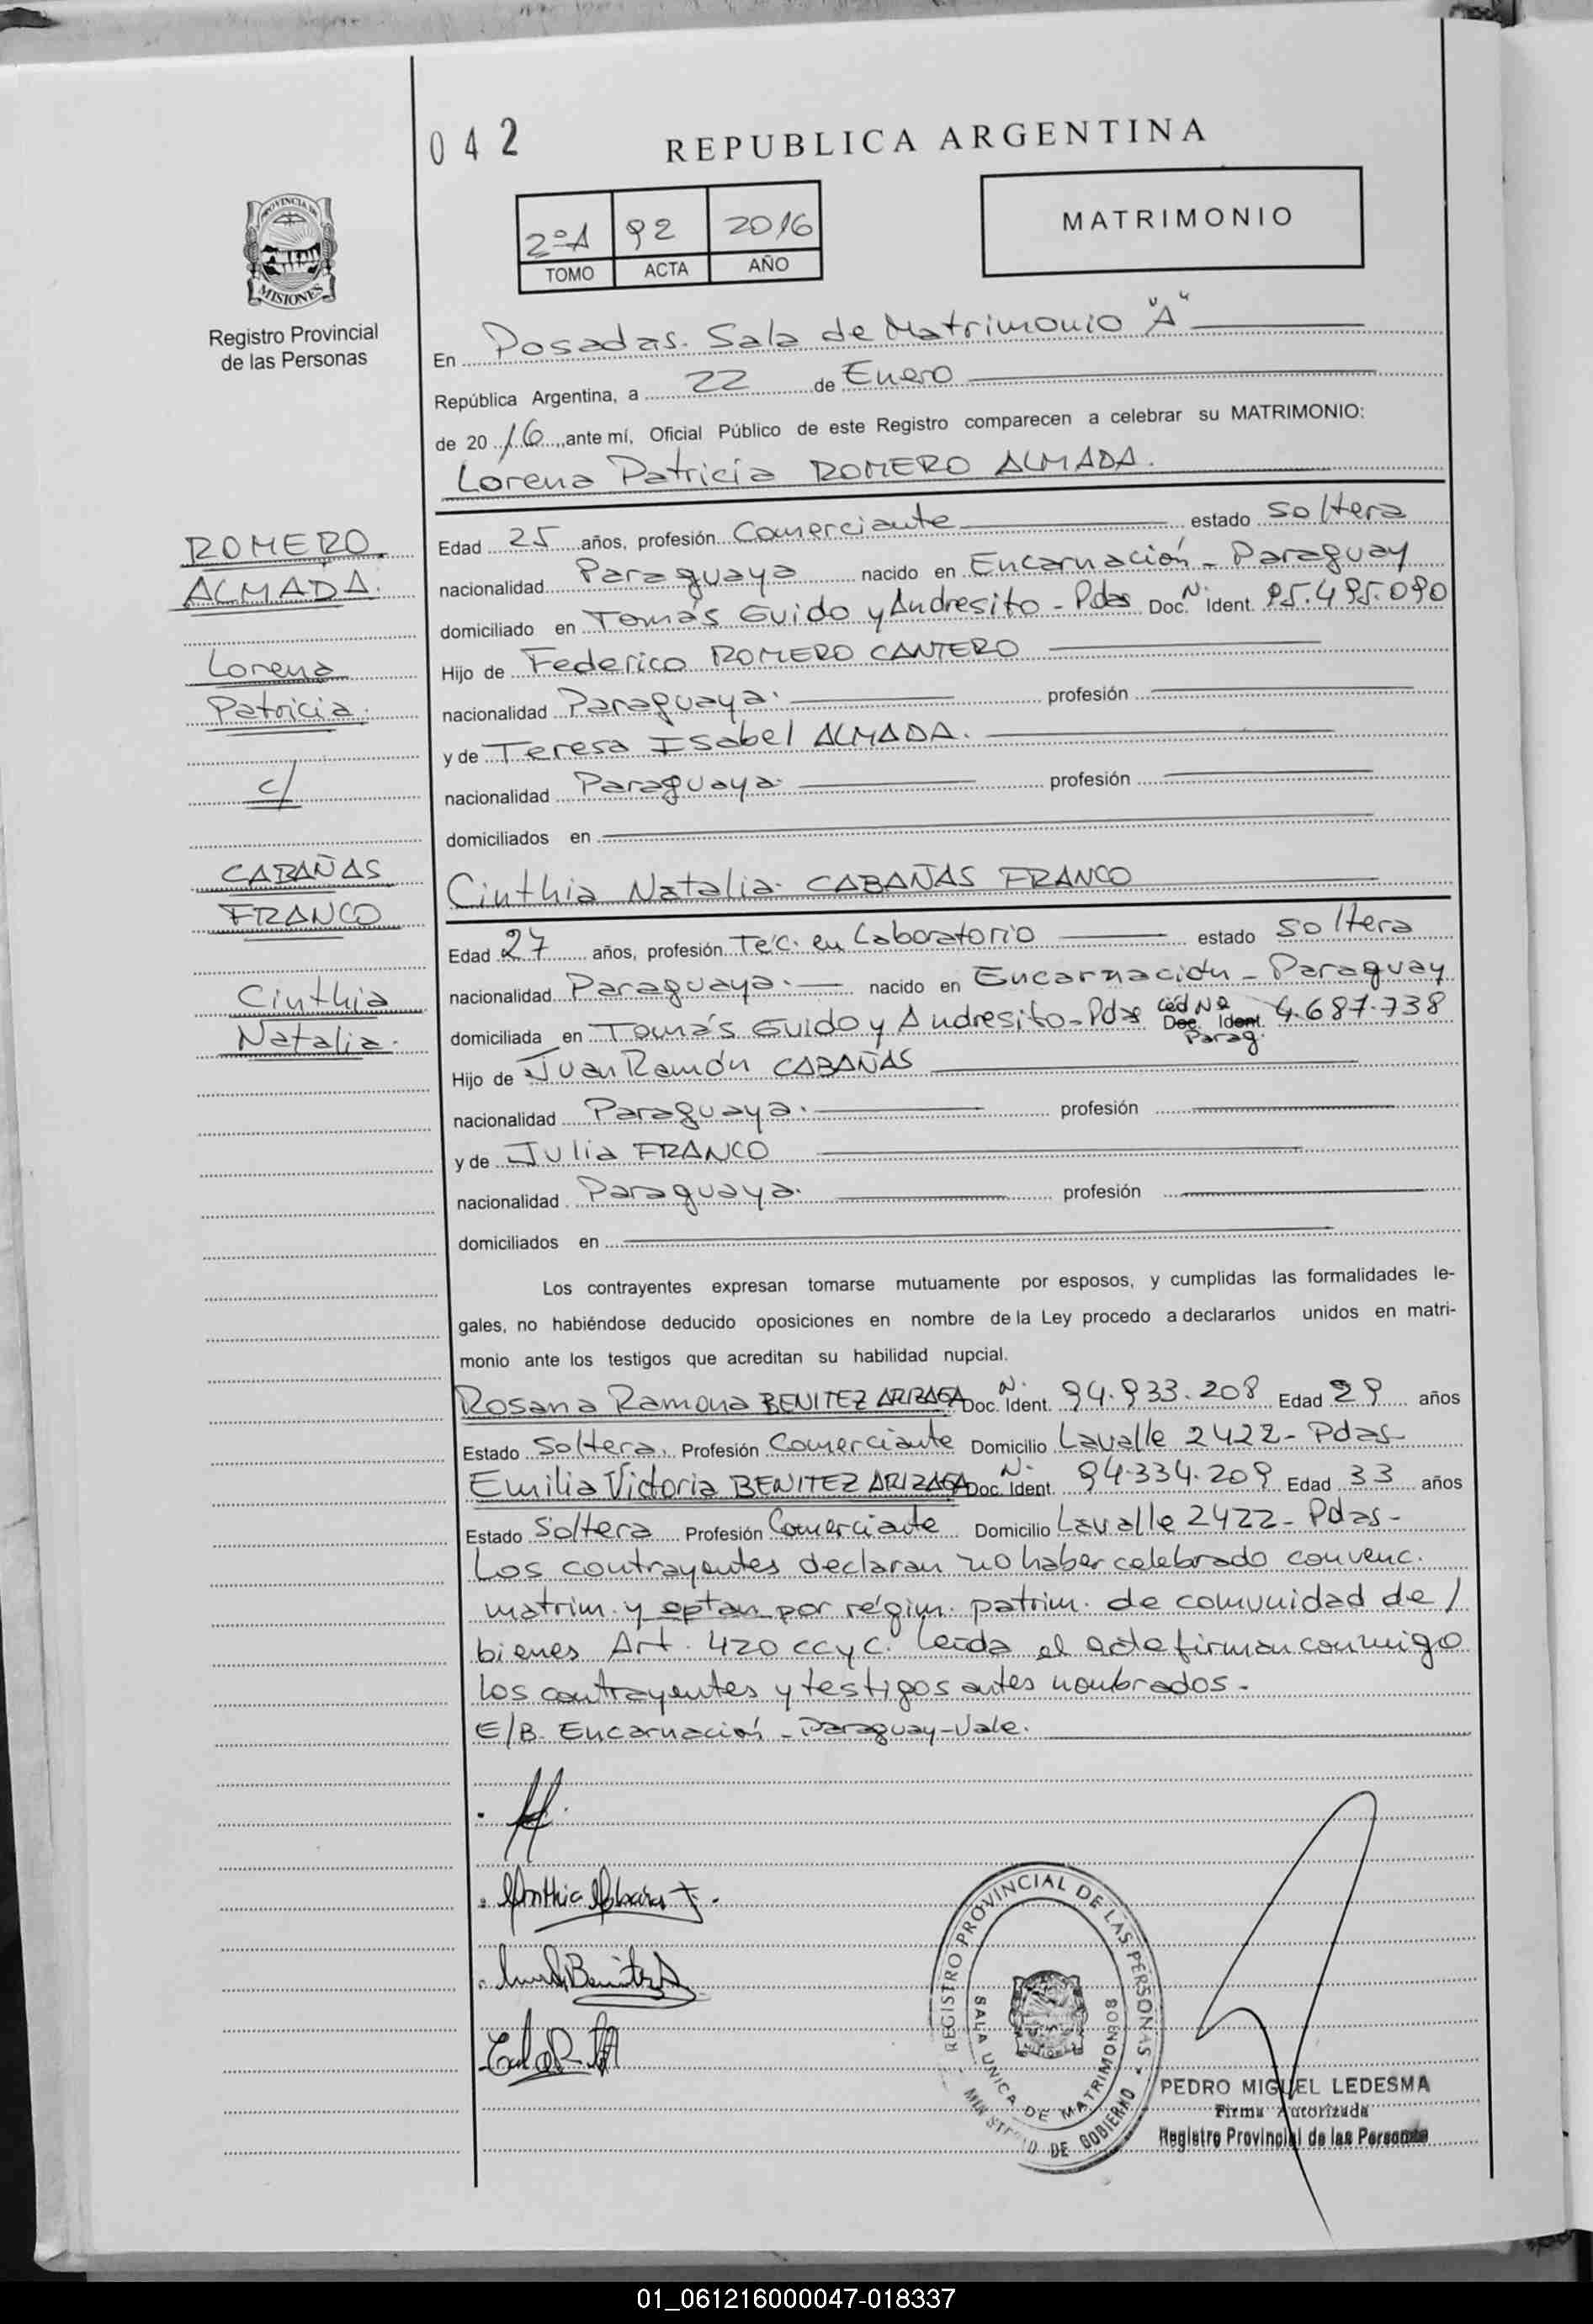 042
REPUBLICA ARGENTINA
PROVINCIA DE
MISIONES
Registro Provincial
de las Personas
2º A 92 2016
TOMO ACTA AÑO
MATRIMONIO
En Posadas. Sala de Matrimonio "A"
República Argentina, a 22 de Enero
de 2016, ante mí, Oficial Público de este Registro comparecen a celebrar su MATRIMONIO:
Lorena Patricia ROMERO ALMADA.
ROMERO
ALMADA.
Lorena
Patricia.
c/
CABAÑAS
FRANCO
Cinthia
Natalia.
Edad 25 años, profesión Comerciante estado soltera
nacionalidad Paraguaya nacido en Encarnación - Paraguay
domiciliado en Tomás Guido y Andresito - Pdas Doc. N. Ident. 95.495.090
Hijo de Federico ROMERO CANTERO
nacionalidad Paraguaya. profesión
y de Teresa Isabel ALMADA.
nacionalidad Paraguaya. profesión
domiciliados en
Cinthia Natalia. CABAÑAS FRANCO
Edad 27 años, profesión Téc. en Laboratorio estado soltera
nacionalidad Paraguaya. nacido en Encarnación - Paraguay
domiciliada en Tomás Guido y Andresito - Pdas Céd Nº Doc. Ident. Parag. 4.687.738
Hijo de Juan Ramón CABAÑAS
nacionalidad Paraguaya. profesión
y de Julia FRANCO
nacionalidad Paraguaya. profesión
domiciliados en
Los contrayentes expresan tomarse mutuamente por esposos, y cumplidas las formalidades le-
gales, no habiéndose deducido oposiciones en nombre de la Ley procedo a declararlos unidos en matri-
monio ante los testigos que acreditan su habilidad nupcial.
Rosana Ramona BENITEZ ARIZAGA Doc. N. Ident. 94.933.208 Edad 29 años
Estado Soltera. Profesión Comerciante Domicilio Lavalle 2422 - Pdas -
Emilia Victoria BENITEZ ARIZAGA Doc. N. Ident. 94.334.209 Edad 33 años
Estado Soltera Profesión Comerciante Domicilio Lavalle 2422 - Pdas -
Los contrayentes declaran no haber celebrado convenc.
matrim. y optan por régim. patrim. de comunidad de /
bienes Art. 420 CCyC. Leída el acta firman conmigo
los contrayentes y testigos antes nombrados -
E/B. Encarnación - Paraguay - Vale.
REGISTRO PROVINCIAL DE LAS PERSONAS
SALA UNICA DE MATRIMONIOS
MINISTERIO DE GOBIERNO
PEDRO MIGUEL LEDESMA
Firma Autorizada
Registro Provincial de las Personas
01_061216000047-018337